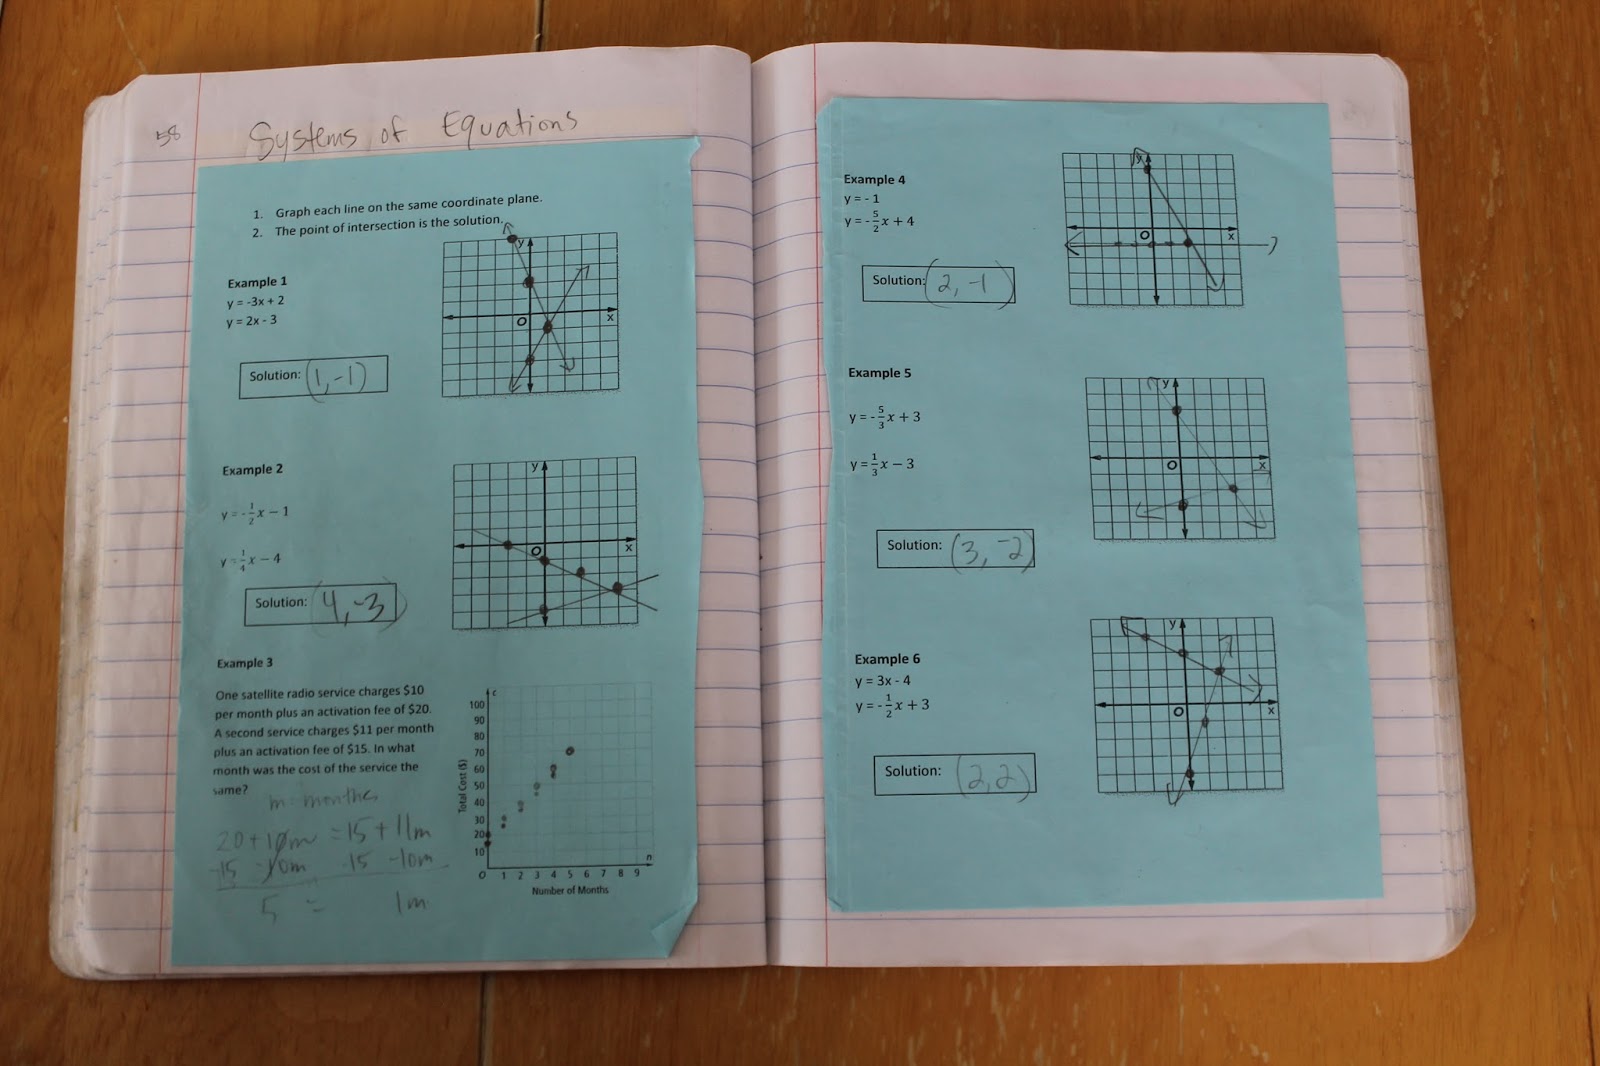 58
Systems of Equations
1. Graph each line on the same coordinate plane.
2. The point of intersection is the solution.
Example 1
y = -3x + 2
y = 2x - 3
Solution: (1, -1)
y
O
x
Example 2
y = -1/2 x − 1
y = 1/4 x − 4
Solution: (4, -3)
y
O
x
Example 3
One satellite radio service charges $10
per month plus an activation fee of $20.
A second service charges $11 per month
plus an activation fee of $15. In what
month was the cost of the service the
same?
m = months
20 + 10m = 15 + 11m
-15 -10m -15 -10m
5 = 1m
c
100
90
80
70
60
50
40
30
20
10
Total Cost ($)
n
0 1 2 3 4 5 6 7 8 9
Number of Months
Example 4
y = - 1
y = -5/2 x + 4
Solution: (2, -1)
y
O
x
Example 5
y = -5/3 x + 3
y = 1/3 x − 3
Solution: (3, -2)
y
O
x
Example 6
y = 3x - 4
y = -1/2 x + 3
Solution: (2, 2)
y
O
x